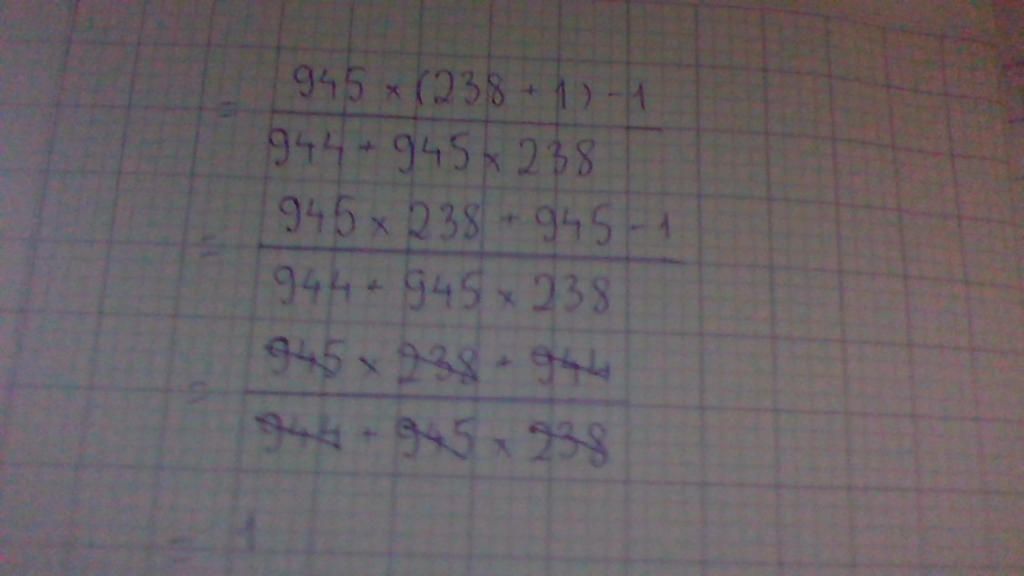 = 945 × (238 + 1) - 1
944 + 945 × 238
= 945 × 238 + 945 - 1
944 + 945 × 238
= 945 × 238 + 944
944 + 945 × 238
= 1